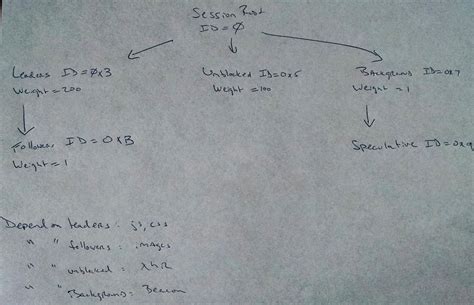 Session Root
ID=0
Leaders ID=0x3
Weight=200
Unblocked ID=0x5
Weight=100
Background ID=0x7
Weight=1
Followers ID=0xB
Weight=1
Speculative ID=0x9
Depend on leaders: js, css
" " followers: images
" " unblocked: XHR
" " Background: Beacon